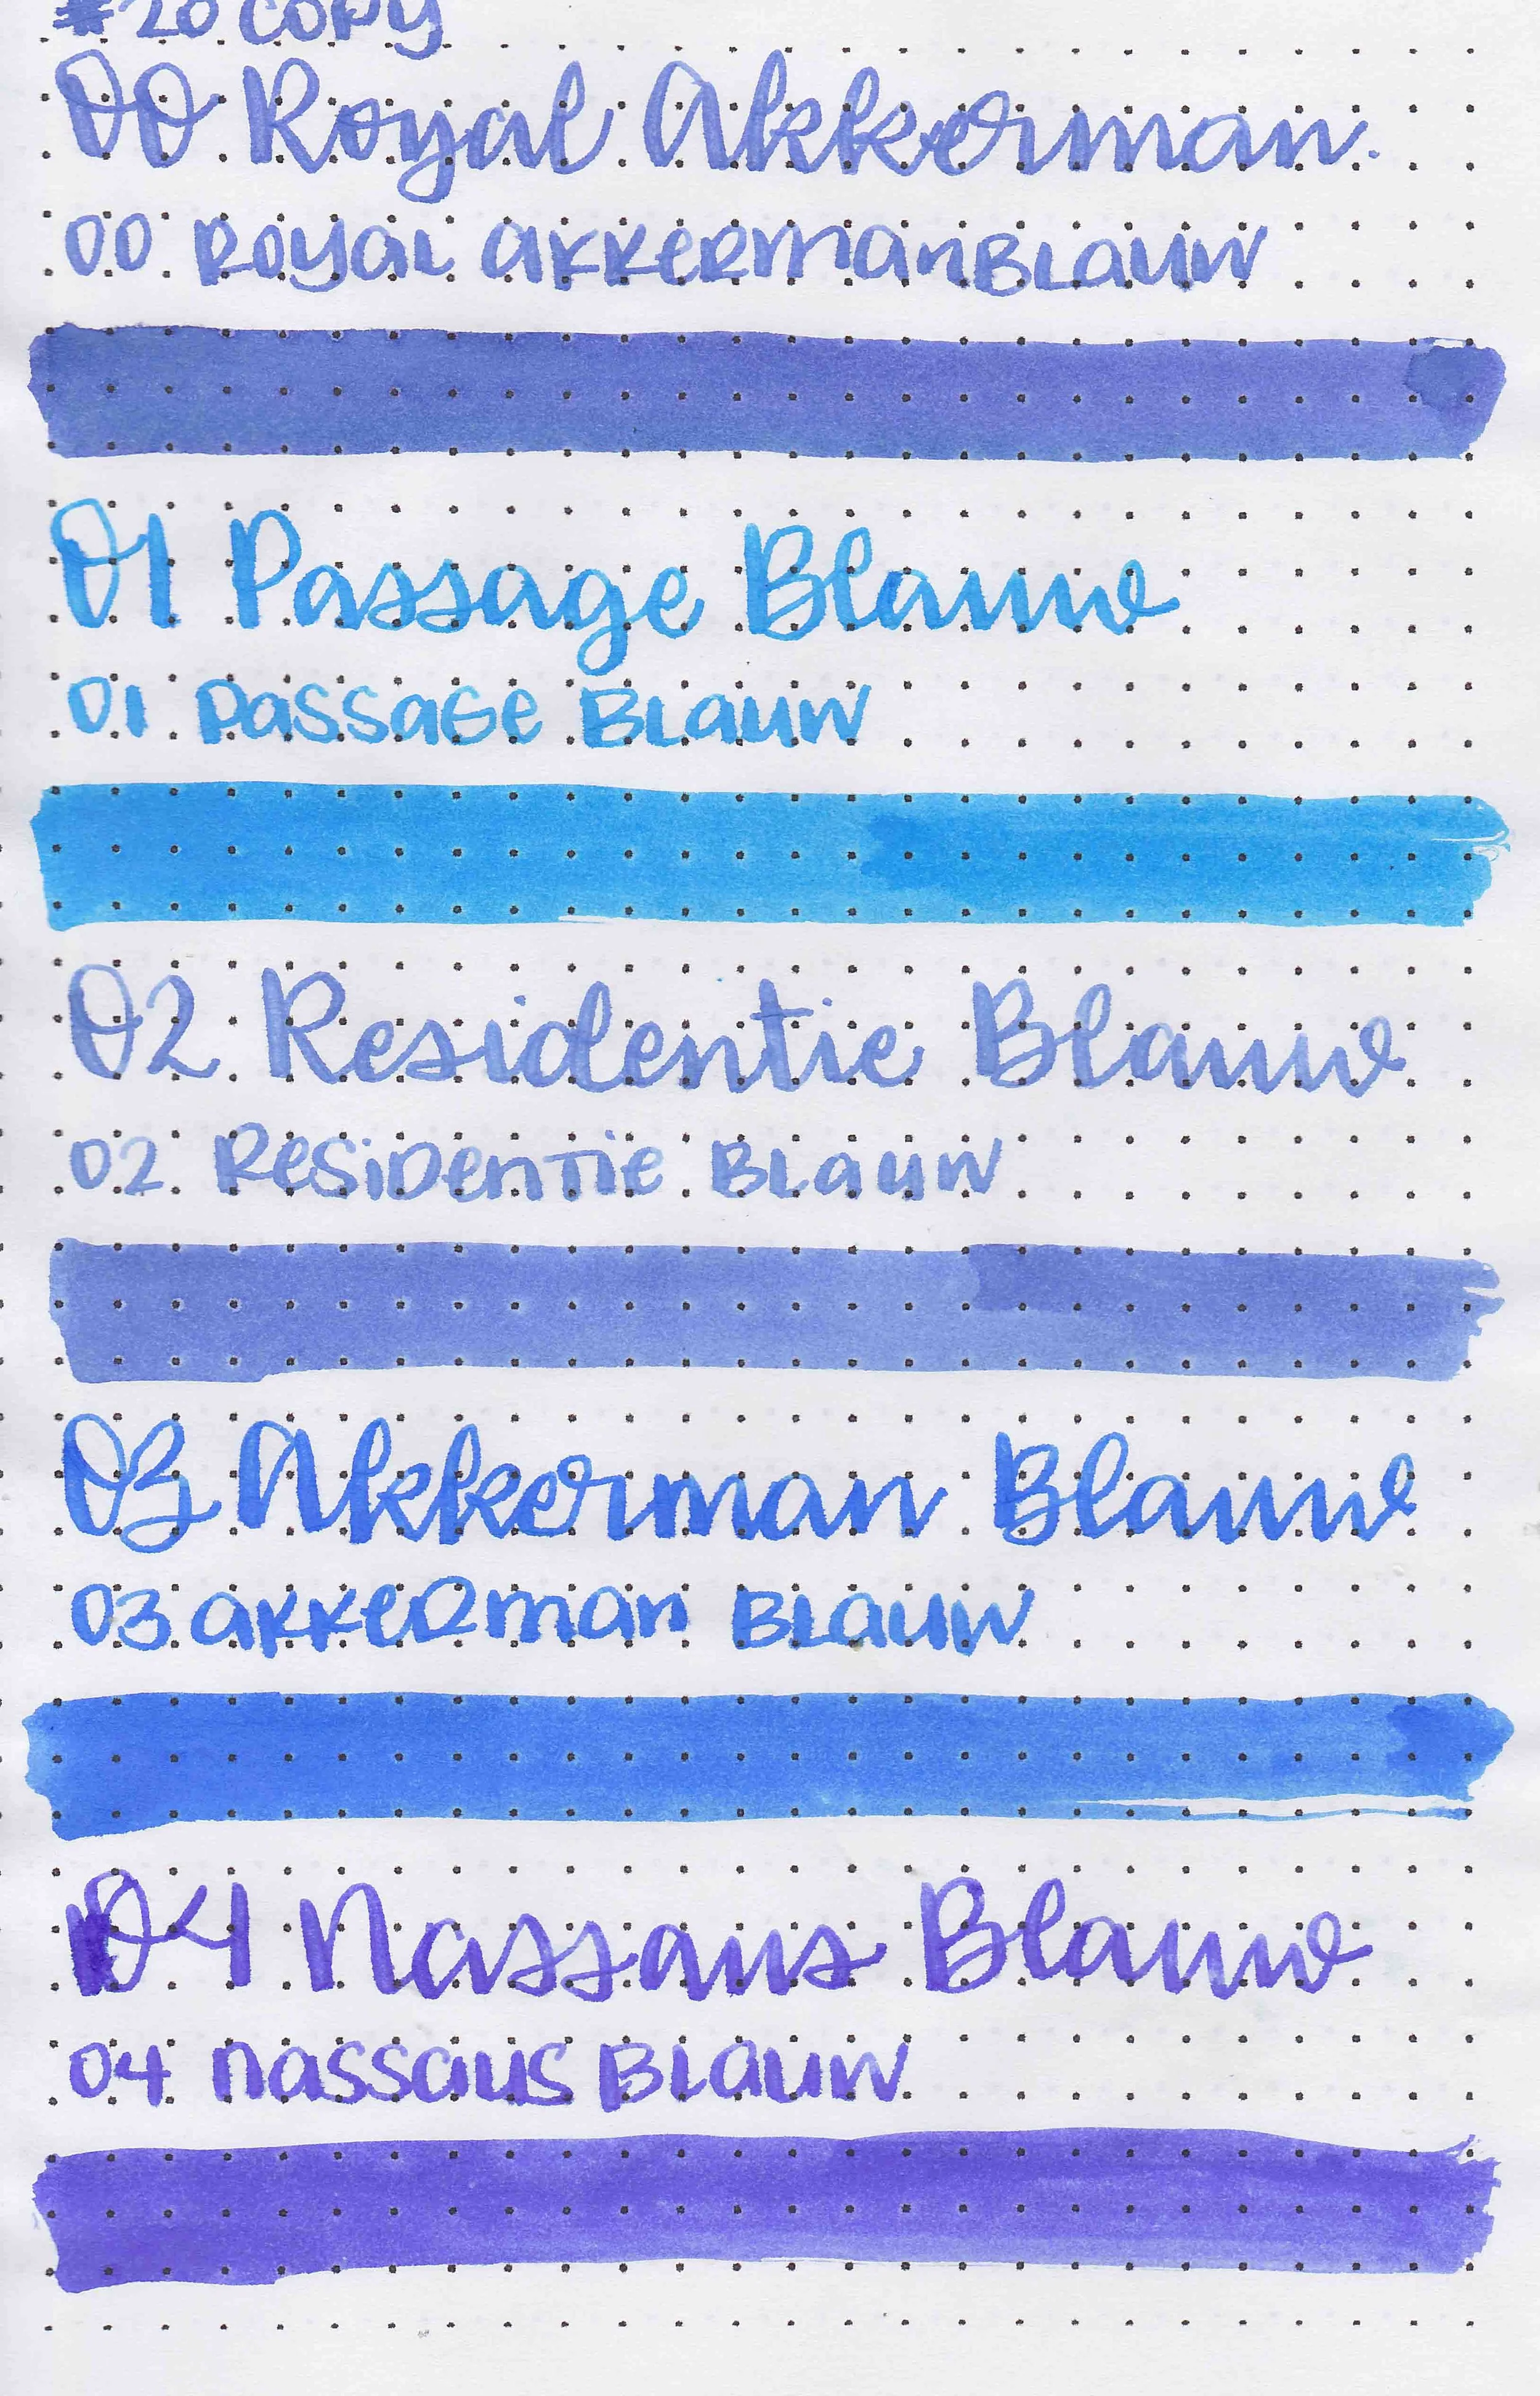 #20 COPY
00 Royal Akkerman
00 ROYAL AKKERMANBLAUW
01 Passage Blauw
01 PASSAGE BLAUW
02 Residentie Blauw
02 RESIDENTIE BLAUW
03 Akkerman Blauw
03 AKKERMAN BLAUW
04 Nassaus Blauw
04 NASSAUS BLAUW